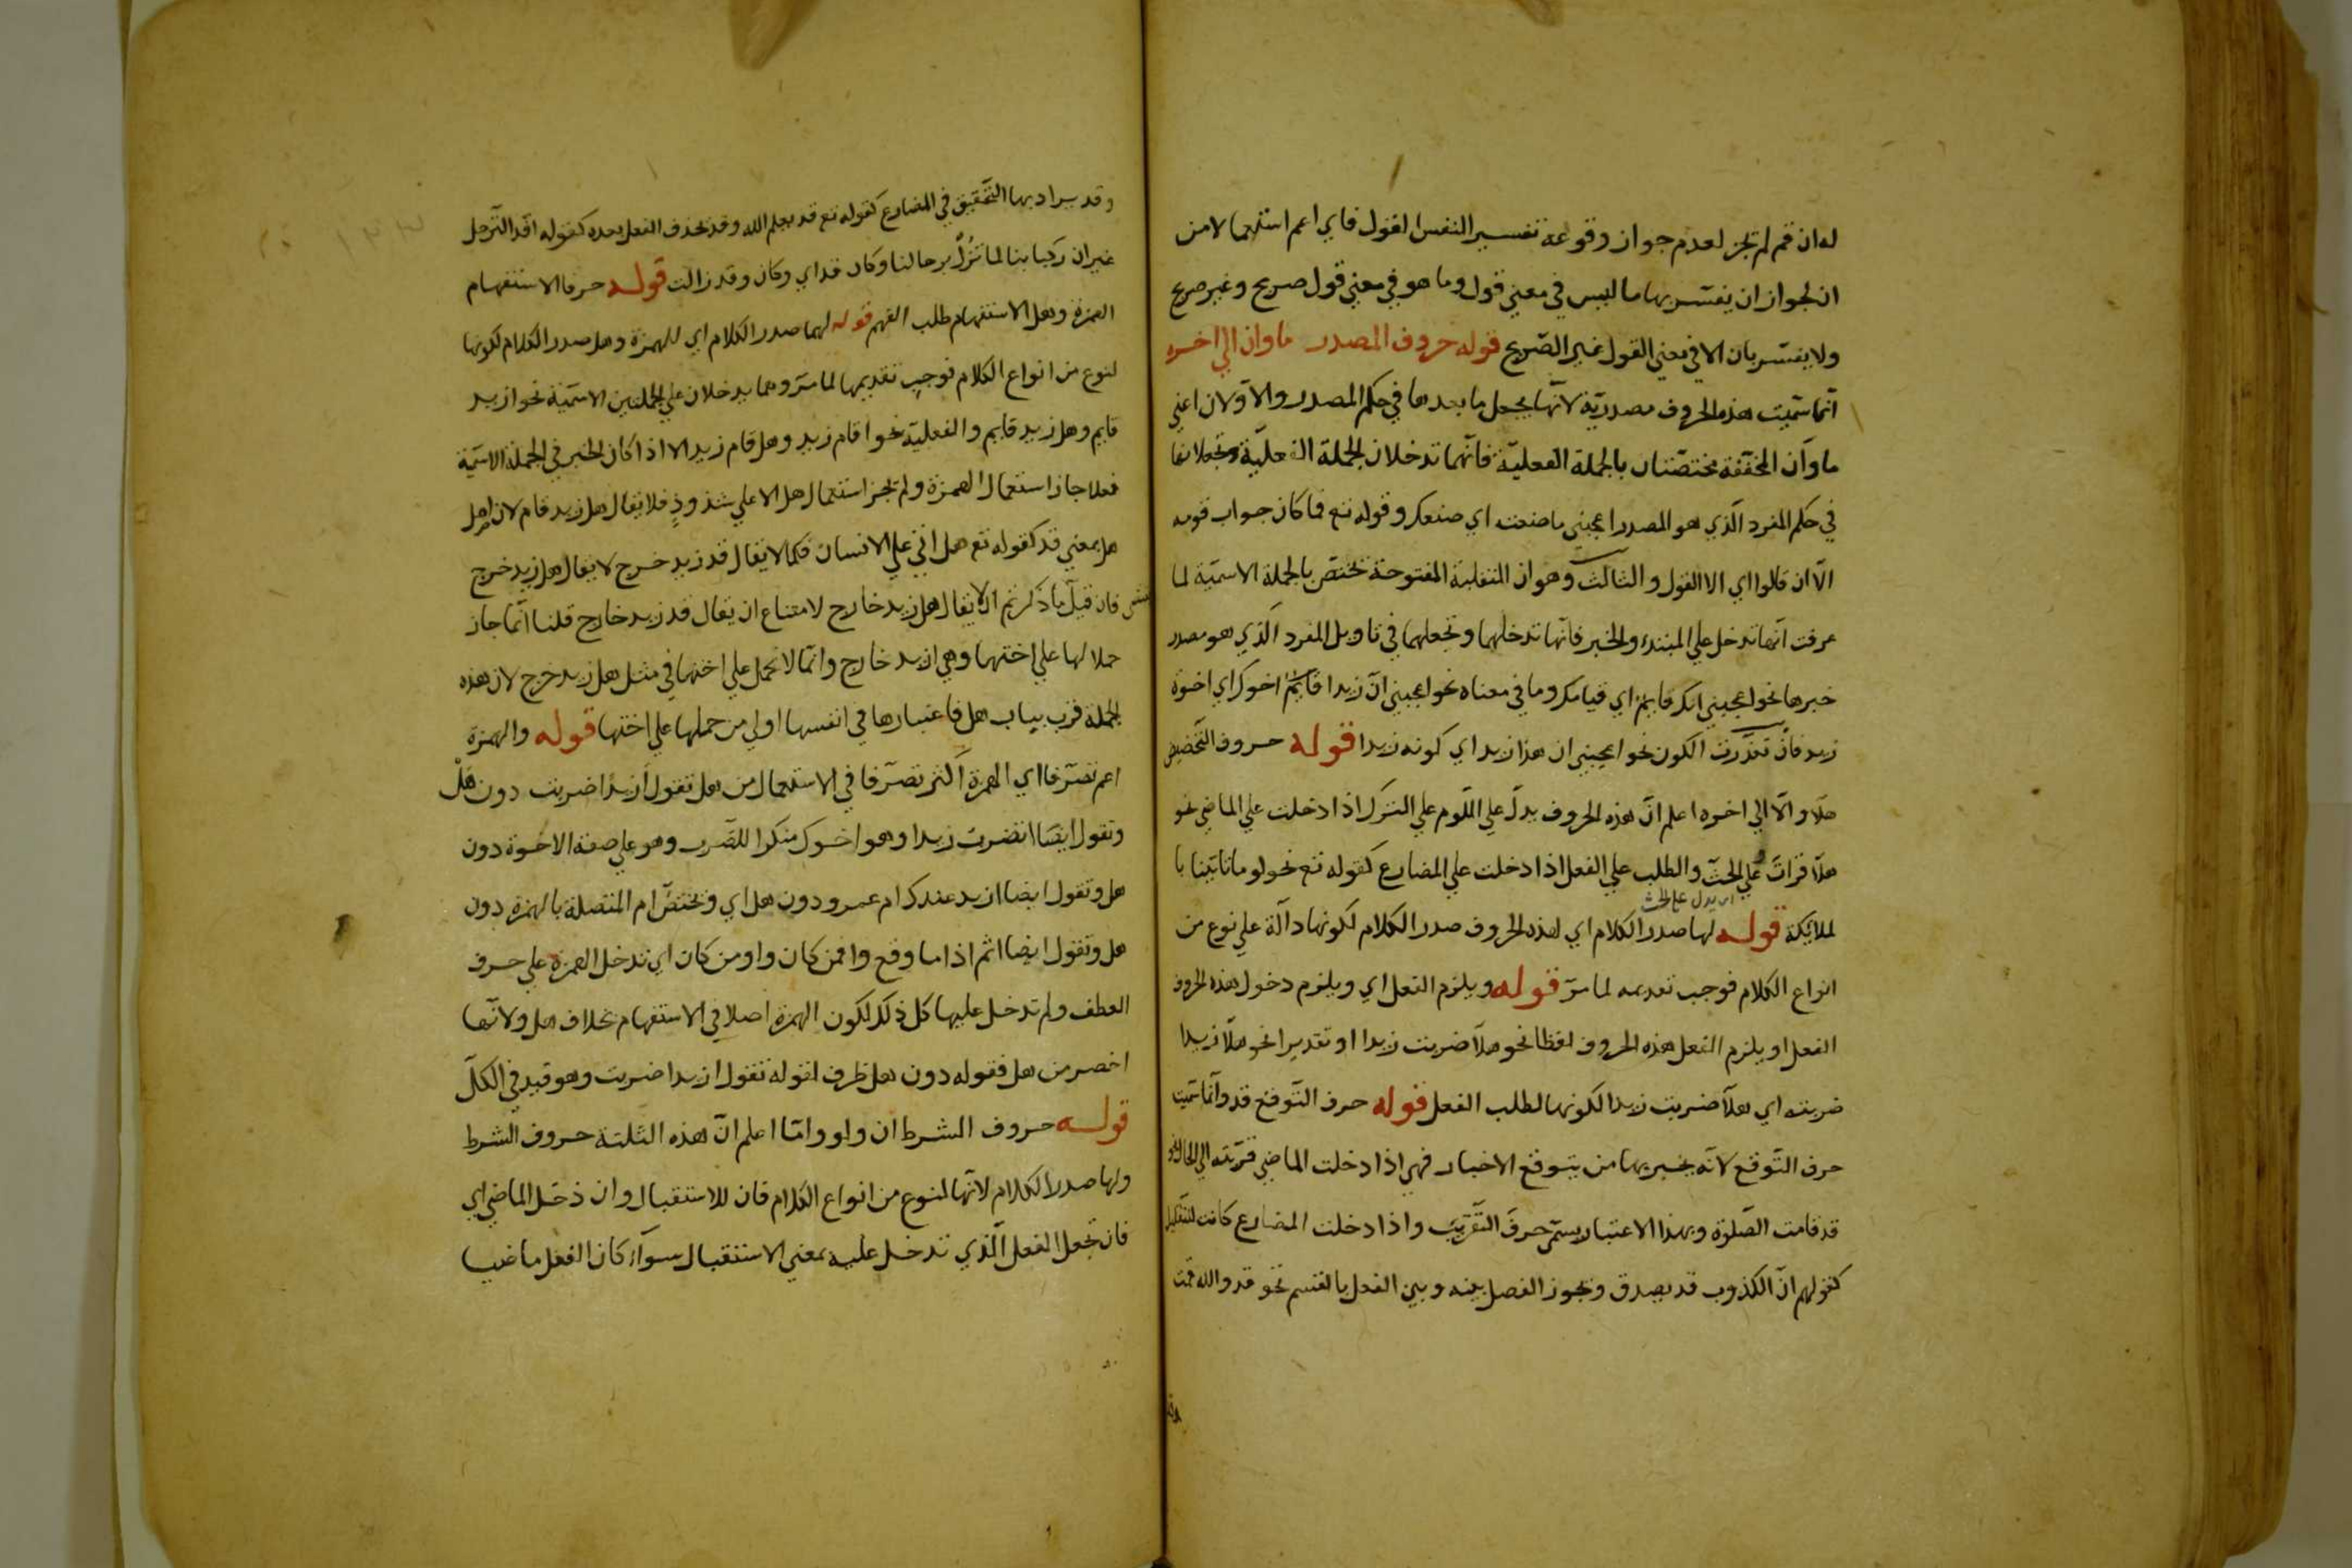 له ان قم لم تجز لعدم جواز وقوعه تفسير النفس القول فاي اعم استعمالا من
ان لجواز ان يفسّر بها ما ليس في معنى قول وما هو في معنى قول صريح وغير صريح
ولا يفسّر بان الا في معنى القول غير الصّريح قوله حروف المصدر ما وان الي اخره
انّما سمّيت هذه الحروف مصدريّة لانّها يجعل ما بعدها في حكم المصدر والاوّلان اعني
ما وأن المخفّفة مختصّتان بالجملة الفعليّة فانّهما تدخلان الجملة الفعليّة وتجعلانها
في حكم المفرد الّذي هو المصدر اعجبني ما صنعت اي صنعك وقوله تع فما كان جواب قومه
الّا ان قالوا اي الا القول والثالث وهو ان المثقلية المفتوحة تختصّ بالجملة الاسميّة لما
عرفت انّها تدخل علي المبتدء والخبر فانّها تدخلهما وتجعلهما في تاويل المفرد الّذي هو مصدر
خبرها نحو اعجبني انك قايمٌ اي قيامك وما في معناه نحو اعجبني انّ زيدا قايمٌ اخوك اي اخوة
زيد فانّ تعذّرت الكون نحو اعجبني ان هذا زيد اي كونه زيدا قوله حروف التّخضيض
هلّا والّا الي اخره اعلم انّ هذه الحروف يدلّ علي اللّوم علي الترك اذا دخلت علي الماضي نحو
هلّا قراتَ علي الحثّ والطلب علي الفعل اذا دخلت علي المضارع كقوله تع نحو لو ما تاتينا با
اي يدل علي الحث
لملائكة قوله لها صدر الكلام اي لهذه الحروف صدر الكلام لكونها دالّة علي نوع من
انواع الكلام فوجب تقديمه لما مرّ قوله ويلزم الفعل اي ويلزم دخول هذه الحروف
الفعل او يلزم الفعل هذه الحروف لفظا نحو هلّا ضربت زيدا او تقديرا نحو هلّا زيدا
ضربته اي هلّا ضربت زيدا لكونها لطلب الفعل قوله حرف التّوقع قد وانّما سمّيت
حرف التّوقع لانّه يخبر بها من يتوقع الاخبار فهي اذا دخلت الماضي قرّبته الي الحال نحو
قد قامت الصّلوة وبهذا الاعتبار يسمّى حرفَ التّقريب واذا دخلت المضارع كانت للتقليل
كقولهم انّ الكذوب قد يصدق ويجوز الفصل بينه وبين الفعل بالقسم نحو قد والله قمت
وقد يراد بها التّحقيق في المضارع كقوله تع قد يعلم الله وقد يحذف الفعل بعده كقوله افد الترحل
غير ان ركابنا لما تزُلْ برحالنا وكان قد اي وكان وقد زالت قوله حرفا الاستفهام
الهمزة وهل الاستفهام طلب الفهم قوله لهما صدر الكلام اي للهمزة وهل صدر الكلام لكونها
لنوع من انواع الكلام فوجب تقديمها لما مرّ وهما يدخلان علي الجملتين الاسميّة نحو ازيد
قايم وهل زيد قايم والفعلية نحو اقام زيد وهل قام زيد الا اذا كان الخبر في الجملة الاسميّة
فعلا جاز استعمال الهمزة ولم تجز استعمال هل الا علي شذوذٍ فلا يقال هل زيد قام لان اصل
هل بمعني قد كقوله تع هل اتي علي الانسان فكما لا يقال قد زيد خرج لا يقال هل زيد خرج
فان قيل ما ذكرتم ان لا يقال هل زيد خارج لامتناع ان يقال قد زيد خارج قلنا انّما جاز
حملا لها علي اختها وهي ازيد خارج وانّما لا تحمل علي اختها في مثل هل زيد خرج لان هذه
الجملة قرب بباب هل فاعتبارها في انفسها اولي من حملها علي اختها قوله والهمزة
اعم تصرّفا اي الهمزة اكثر تصرّفا في الاستعمال من هل تقول أزيدًا ضربت دون هَلْ
وتقول ايضًا اتضرب زيدا وهو اخوك منكرا للضّرب وهو علي صفة الاخوة دون
هل وتقول ايضا ازيد عندك ام عمرو دون هل اي وتختصّ ام المتصلة بالهمزة دون
هل وتقول ايضا اثم اذا ما وقع وافمن كان واومن كان اي تدخل الهمزة علي حرف
العطف ولم تدخل عليها كل ذلك لكون الهمزة اصلا في الاستفهام بخلاف هل ولانّها
اخصر من هل فقوله دون هل ظرف لقوله تقول ازيدا ضربت وهو قيد في الكلّ
قوله حروف الشرط ان ولو وامّا اعلم انّ هذه الثلثة حروف الشرط
ولها صدر الكلام لانّها لنوع من انواع الكلام فان للاستقبال وان دخل الماضي اي
فان تجعل الفعل الّذي تدخل عليه بمعني الاستقبال سوآء كان الفعل ماضيا